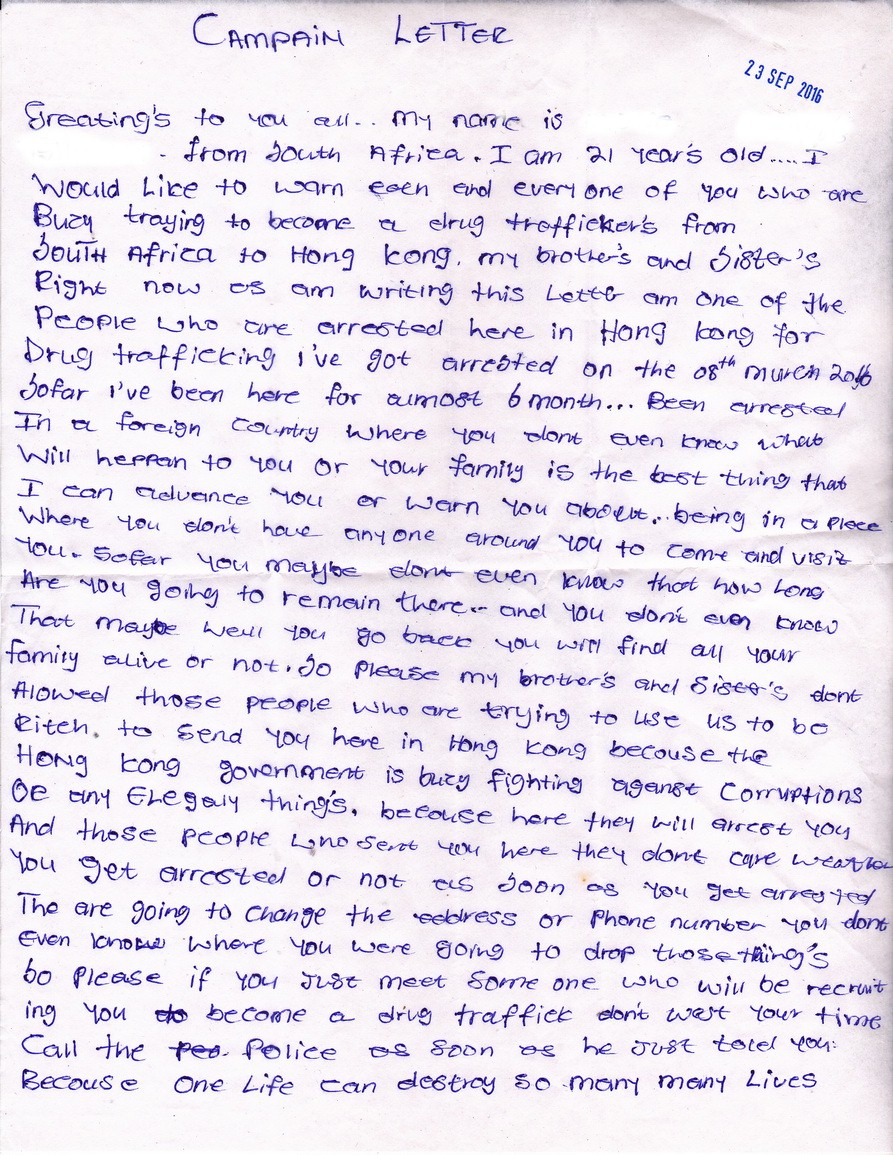 CAMPAIN LETTER
23 SEP 2016
Greating's to you all.. My name is
. from South Africa. I am 21 year's old.... I
Would Like to warn each and everyone of you who are
Buzy traying to become a drug trafficker's from
South Africa to Hong Kong. my brother's and Sister's
Right now as am writing this Letter am one of the
People who are arrested here in Hong Kong for
Drug trafficking I've got arrested on the 08th March 2016
Sofar I've been here for aumost 6 month... Been arrested
In a foreign Country where you dont even know what
Will heppan to you or your family is the best thing that
I can advance you or warn you about.. being in a place
Where you don't have anyone around you to come and visit
You. Sofar you maybe dont even know that how Long
Are you going to remain there.. and you don't even know
That maybe weul you go back you will find all your
family alive or not. So please my brother's and Sister's dont
Alowed those people who are trying to use us to be
Ritch. to Send you here in Hong Kong becouse the
Hong Kong government is buzy fighting against Corruptions
Or any Elegaly thing's. because here they will arrest you
And those people who sent you here they dont care weather
You get arrested or not as Soon as you get arrested
The are going to change the address or Phone number you dont
Even know where you were going to drop those thing's
So please if you Just meet Some one who will be recruit
ing you to become a drug traffick don't wast your time
Call the Police as Soon as he Just told you.
Becouse One Life can destroy so many many Lives